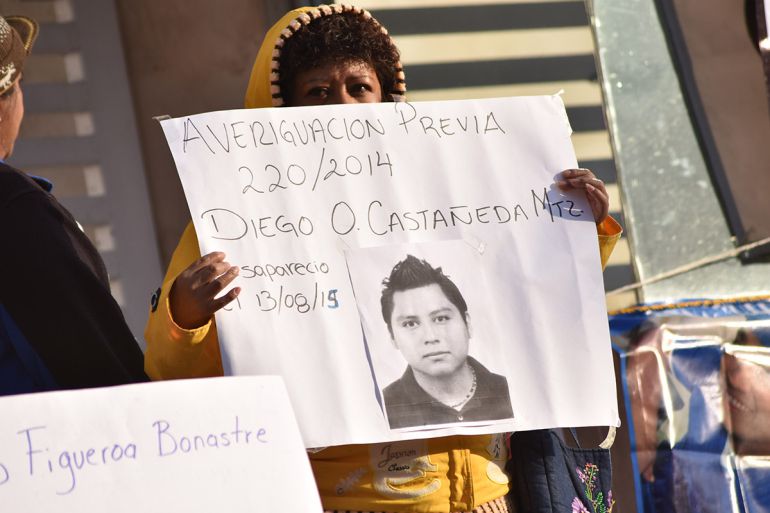 AVERIGUACION PREVIA
220/2014
DIEGO O. CASTAÑEDA MTZ
saparecio
13/08/15
Figueroa Bonastre